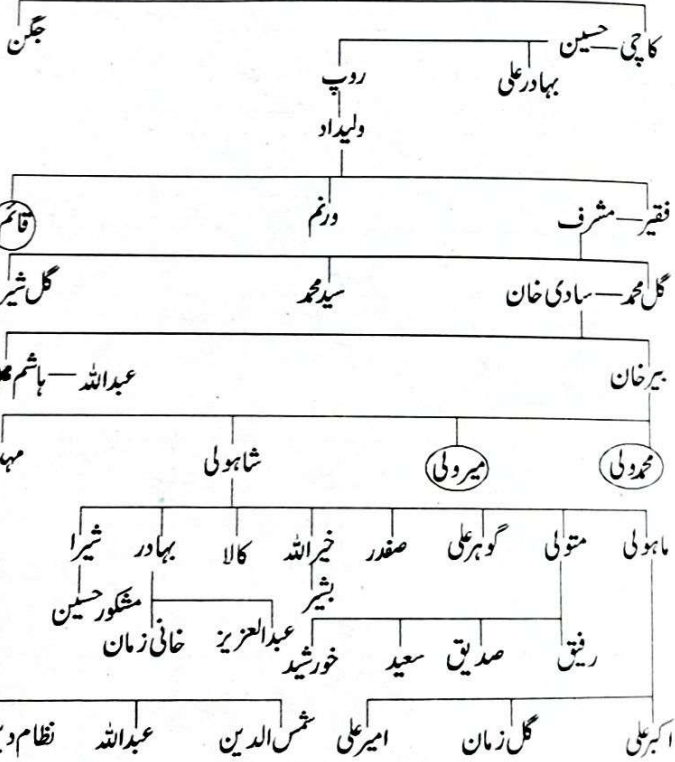 کاچی — حسین جگن
روپ بہادر علی
ولیداد
فقیر — مشرف ورنم قائم
گل محمد — سادی خان سید محمد گل شیر
بیر خان عبداللہ — ہاشم
محمد ولی میر ولی شاہولی
ماہولی متولی گوہر علی صفدر خیراللہ کالا بہادر شیرا
بشیر مشکور حسین
رفیق صدیق سعید خورشید عبدالعزیز خانی زمان
اکبر علی گل زمان امیر علی شمس الدین عبداللہ نظام